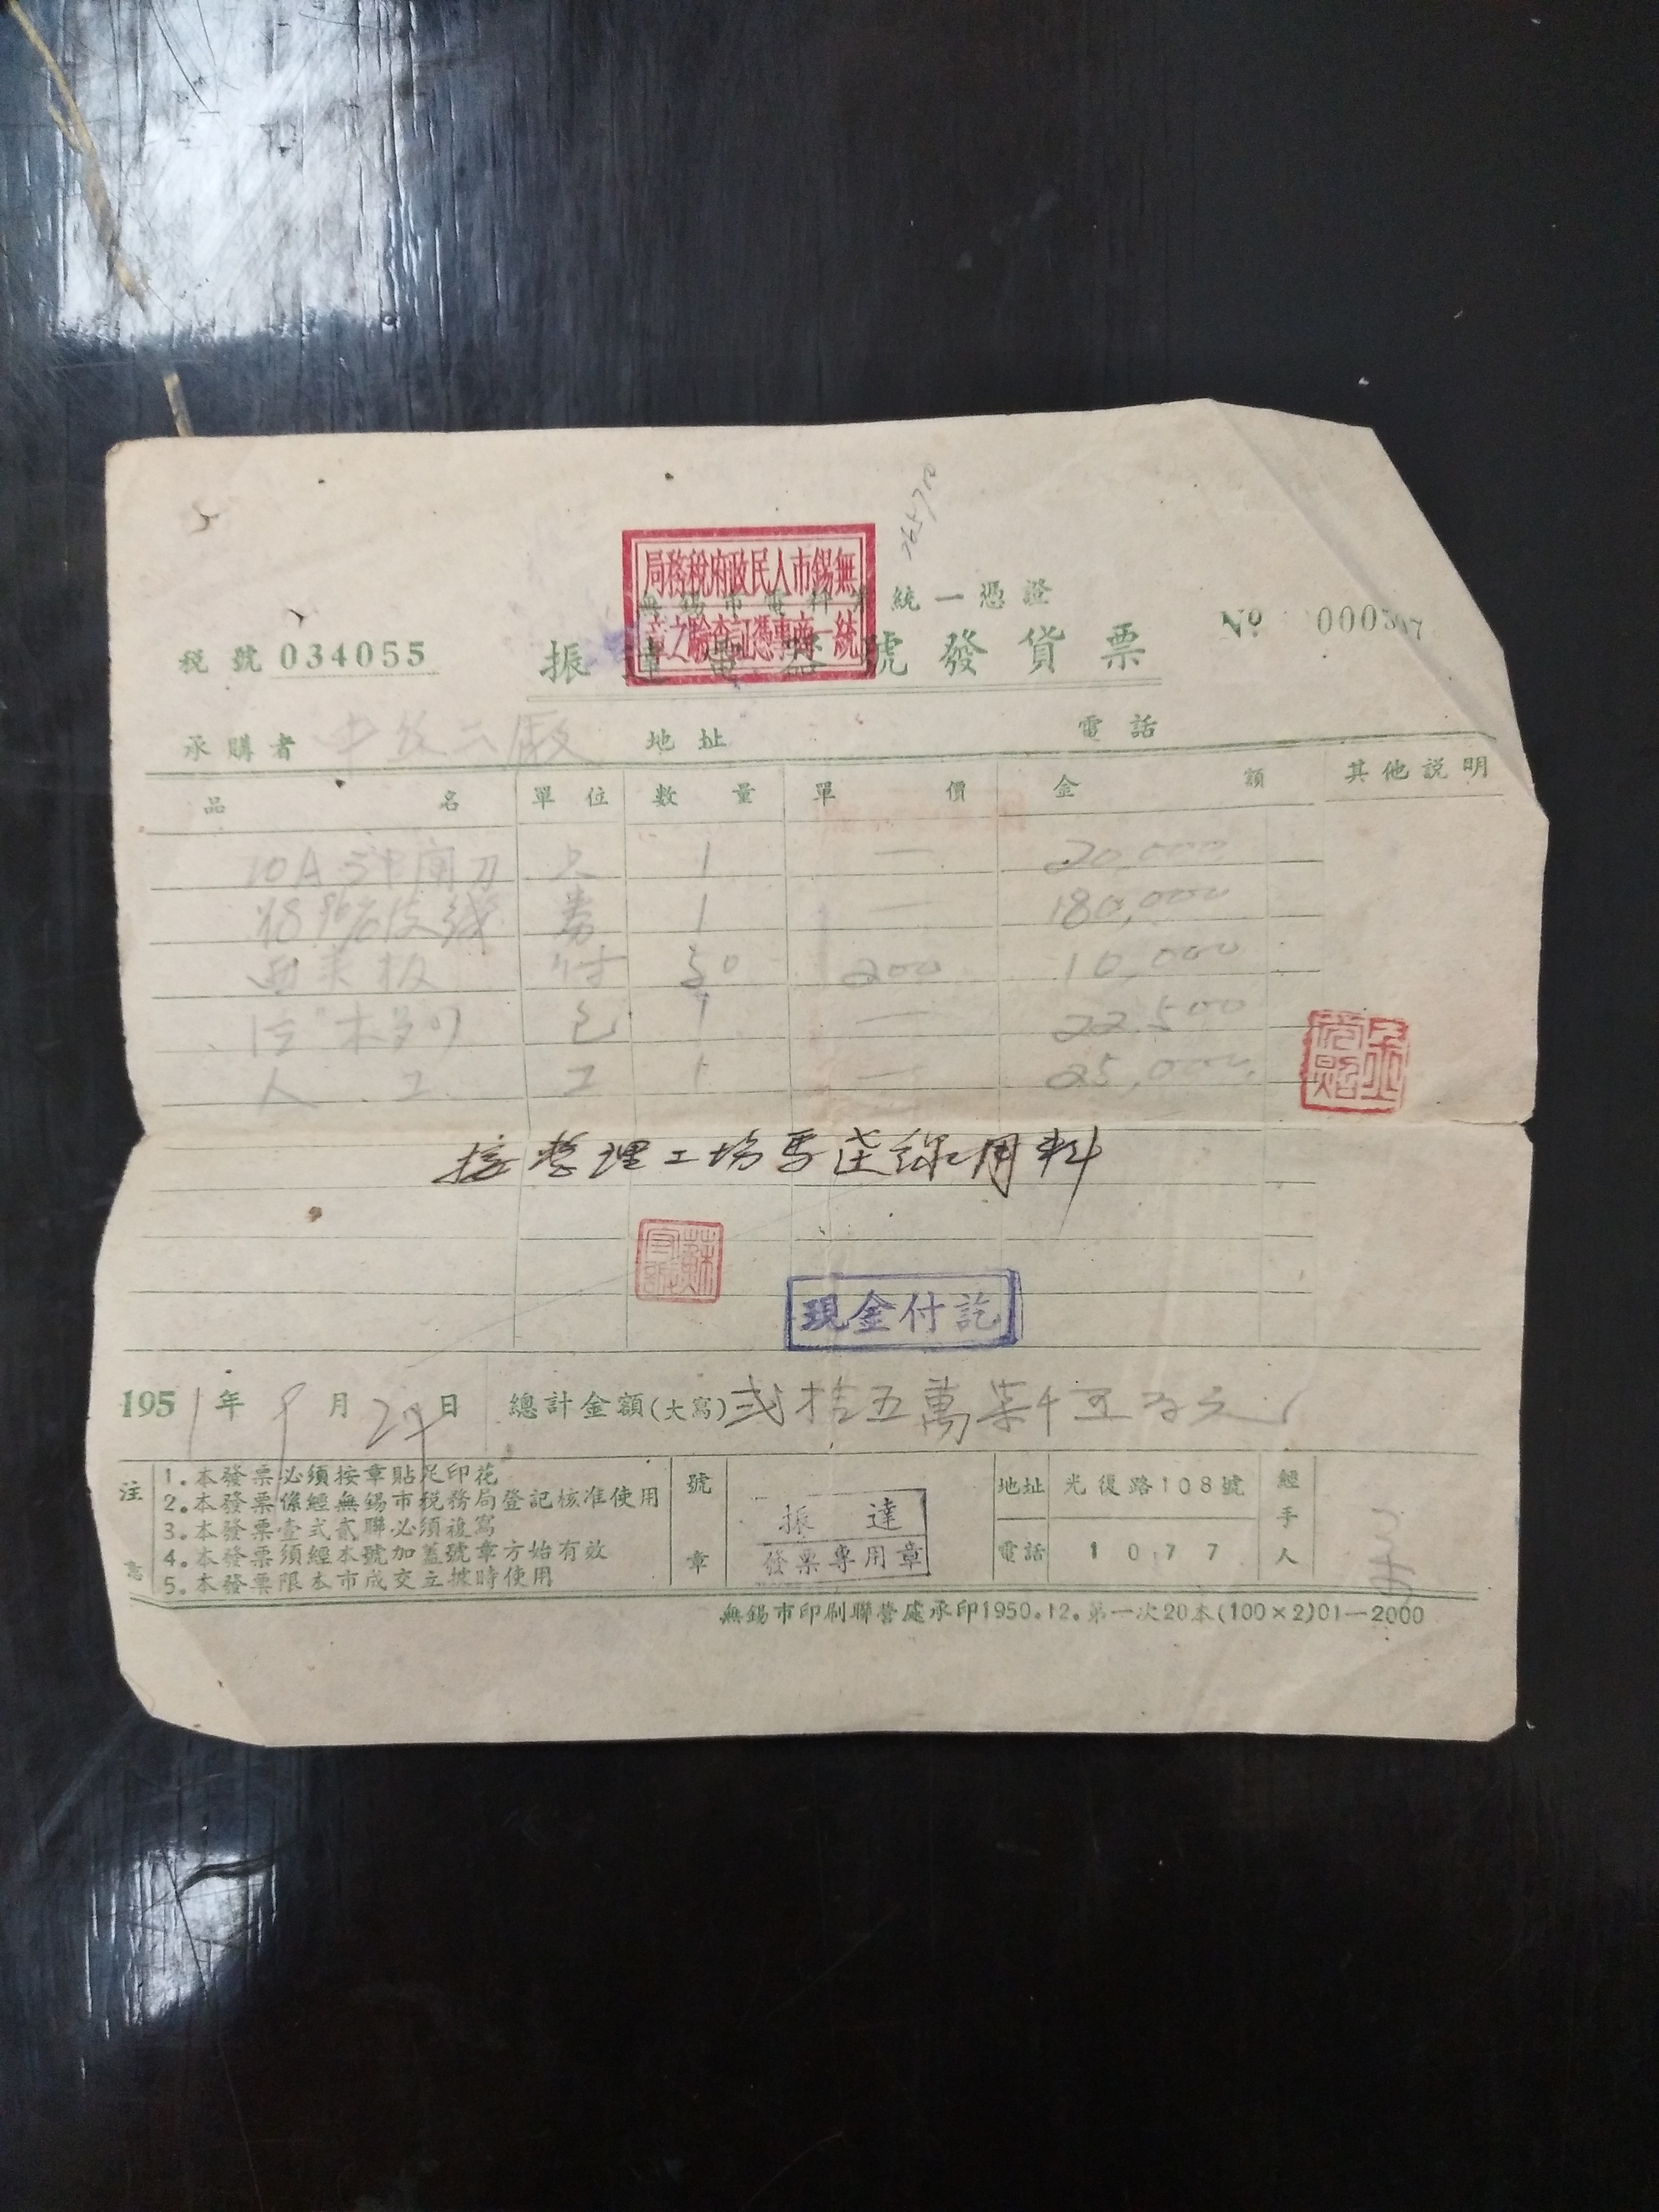 265710
無錫市人民政府稅務局
統一商專憑証查驗之章
無錫市電料業統一憑證
稅號 034055
振達電器號發貨票
Nº 000
承購者 中紡二廠 地址 電話
品名 單位 數量 單價 金額 其他説明
10A 開刀 只 1 — 20,000
皮綫 捲 1 — 180,000
夾板 付 50 200 10,000
包 1 — 22,500
人工 工 1 — 25,000
接整理工場馬達綫用料
現金付訖
1951年9月27日 總計金額(大寫) 弍拾五萬柒千五百元
注意
1.本發票必須按章貼足印花
2.本發票係經無錫市稅務局登記核准使用
3.本發票壹式貳聯必須複寫
4.本發票須經本號加蓋號章方始有效
5.本發票限本市成交立據時使用
號章
振達
發票專用章
地址 光復路108號
電話 1077
經手人
無錫市印刷聯營處承印1950.12.第一次20本(100×2)01—2000